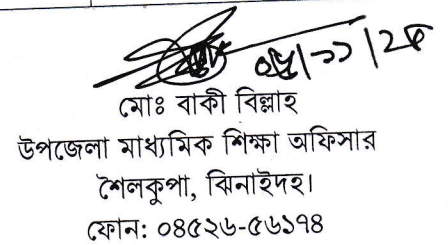 মোঃ বাকী বিল্লাহ
উপজেলা মাধ্যমিক শিক্ষা অফিসার
শৈলকুপা, ঝিনাইদহ।
ফোন: ০৪৫২৬-৫৬১৭৪